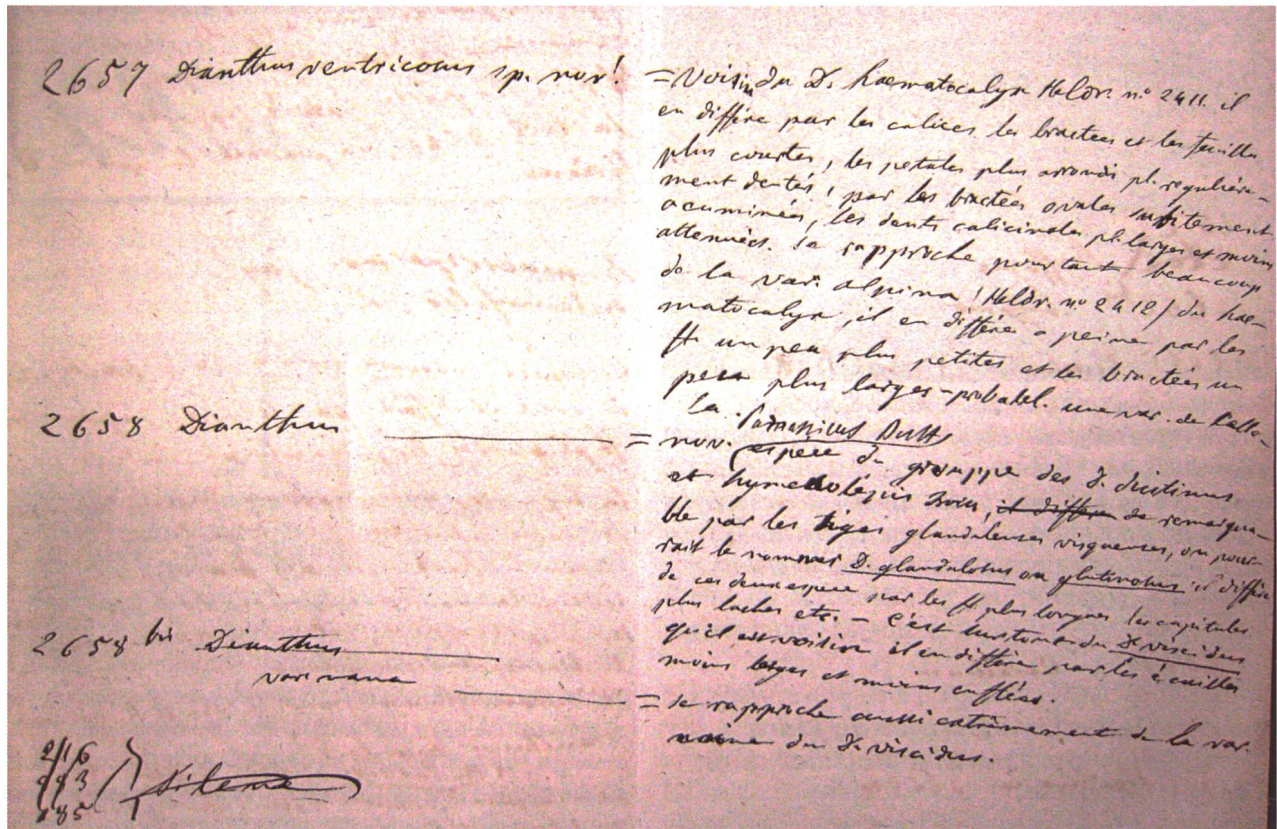 2657 Dianthus ventricosus sp. nov! = Voisin du D. haematocalyx Heldr. n.º 2411. il
en diffère par les calices les bractées et les feuilles
plus courtes, les petales plus arrondi pl. regulière-
ment dentés, par les bractées ovales subitement
acuminées, les dents calicinales pl. larges et moins
attenuées. Se rapproche pourtant beaucoup
de la var. alpina (Heldr. nº 2412) du hae-
matocalyx, il en diffère a peine par les
flt un peu plus petites et les bractées un
peu plus larges - probabl. une var. de
la
2658 Dianthus = nov. espece du grouppe des D.
et Boiss, il diffère de remarqua-
ble par les tiges glanduleuses visqueuses, on pour-
rait le nommer D. glandulosus ou glutinosus il diffère
de ces deux espece par les flt plus longues les capitules
plus laches etc. - C'est du D. viscidus
qu'il est voision il en diffère par les écailles
moins larges et moins enflées.
2658 bis Dianthus
var nana = se rapproche aussi extrèmement de la var.
du D. viscidus.
Silene